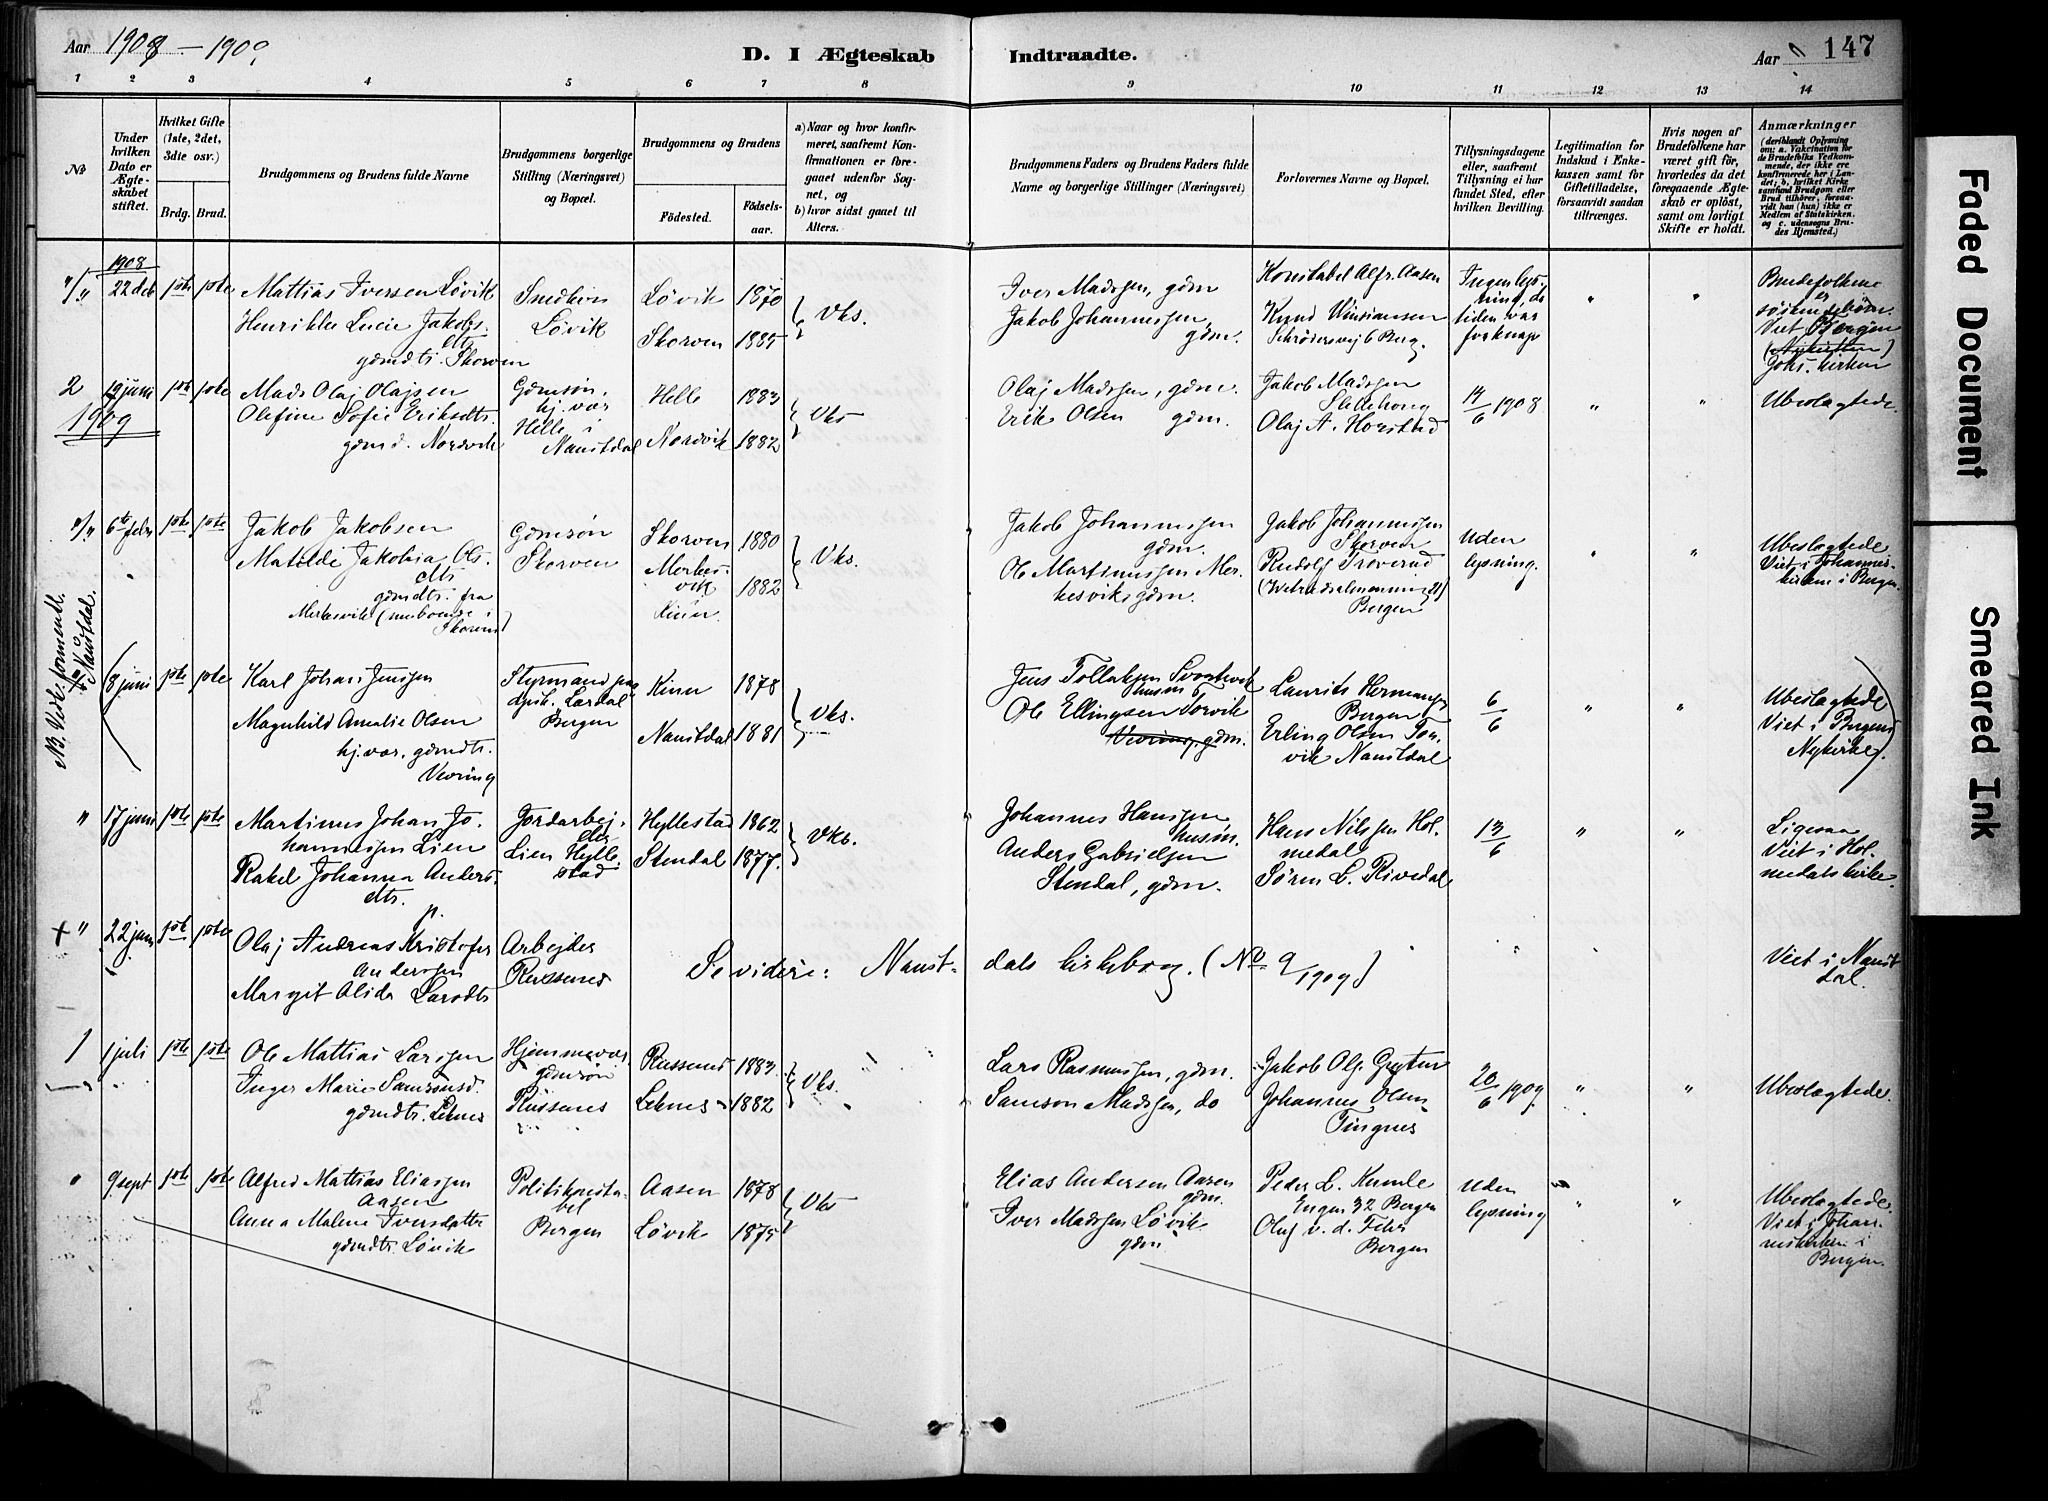 Aar 1908 – 1909
D. I Ægteskab Indtraadte.
Aar 147
1 2 3 4 5 6 7 8 9 10 11 12 13 14
No
Under hvilken Dato er Ægteskabet stiftet.
Hvilket Gifte (1ste, 2det, 3die osv.)
Brdg. Brud.
Brudgommens og Brudens fulde Navne
Brudgommens borgerlige Stilling (Næringsvei) og Bopæl.
Brudgommens og Brudens
Fødested. Fødselsaar.
a) Naar og hvor konfirmeret, saafremt Konfirmationen er foregaaet udenfor Sognet, og
b) hvor sidst gaaet til Alters.
Brudgommens Faders og Brudens Faders fulde Navne og borgerlige Stillinger (Næringsvei)
Forlovernes Navne og Bopæl.
Tillysningsdagene eller, saafremt Tillysning ei har fundet Sted, efter hvilken Bevilling.
Legitimation for Indskud i Enkekassen samt for Giftetilladelse, forsaavidt saadan tiltrænges.
Hvis nogen af Brudefolkene har været gift før, hvorledes da det foregaaende Ægteskab er opløst, samt om lovligt Skifte er holdt.
Anmærkninger (deriblandt Oplysning om: a. Vakcination for de Brudefolks Vedkommende, der ikke ere konfirmerede her i Landet; b. hvilket Kirkesamfund Brudgom eller Brud tilhører, forsaavidt han (hun) ikke er Medlem af Statskirken, og c. udensogns Brudes Hjemsted.)
1908
"/" 22 deb 1ste 1ste
Mattias Iversen Lövik
Henrikke Lucie Jakobs-
dtr.
gdmdtr. Skorven
Snedker
Lövik
Lövik 1870
Skorven 1885
Vks.
Iver Madssen, gdm
Jakob Johannessen
gdm.
Konstabel Alfr. Aasen
Knud
6 Berg.
Ingen lys-
ning, da
tiden var
for knap
" "
Brudefolkene
er
söskendebörn
Viet i Bergen
(Nykirken)
Johs. kirken
2 19 juni 1ste 1ste
Mads Olaj Olajsen
Olefine Sofie Eriksdtr.
gdmd. Nordvik
Gdmsön,
hj.var.
Helle i
Naustdal
Helle 1883
Nordvik 1882
Vks
Olaj Madssen, gdm.
Erik Olsen gdm.
Jakob Madssen
Olaj A. Horstad
14/6 1908
" "
Ubeslægtede.
1909
"/" 6te febr 1ste 1ste
Jakob Jakobsen
Matilde Jakobia Ols-
dtr.
gdmdtr. fra
Merkesvik (nu boende i
Skorven)
Gdmsön
Skorven
Skorven 1880
Merkes-
vik 1882
Kinn
Vks.
Jakob Johannessen
gdm.
Ole Martinussen Mer-
kesvik gdm.
Jakob Johannessen
Skorven
Rudolf
Bergen
Uden
lysning.
" "
Ubeslægtede
Viet i Johannes-
kirken i Bergen.
NB. Vedk. formentl.
Naustdal.
8 juni 1ste 1ste
Karl Johan Jenssen
Magnhild Amalie Olsen
hj.var. gdmdtr.
Vevring
Styrmand paa
dpsk. Lærdal
Bergen
Kinn 1878
Naustdal 1881
Vks.
Jens Tollaksen
husm
Ole Ellingsen Torvik
Vevring, gdm.
Laurits Hermansen
Bergen
Erling Olsen Tor-
vik Naustdal
6/6
" "
Ubeslægtede
Viet i Bergens
Nykirke.
" 17 juni 1ste 1ste
Martinus Johan Jo-
hannessen Lien
Rakel Johanna Anders-
dtr.
Jordarbej-
der
Lien Hylle-
stad
Hyllestad 1862
Stendal 1877.
Vks.
Johannes Hanssen
husm.
Anders Gabrielsen
Stendal, gdm.
Hans Nilssen Hol-
medal
Sören L. Rivedal
13/6
" "
Ligesaa
Viet i Hol-
medals kirke.
+ " 22 juni 1ste 1ste
Olaj Andreas Kristofer
Anderssen
Margit Alida Larsdtr
Arbejder
Russenes
Se videre: Naust-
dals kirkebog. (No 9/1909)
Viet i Naust
dal.
1 1 juli 1ste 1ste
Ole Mattias Larssen
Inger Marie Samsonsd.
gdmdtr. Leknes
Hjemmevær.
gdmsön
Russenes
Russenes 1883
Leknes 1882
Vks.
Lars Rasmussen, gdm.
Samson Madssen, do
Jakob Ols. Grytten
Johannes Olsen
Tingnes
20/6 1909
" "
Ubeslægtede.
" 9 sept 1ste 1ste
Alfred Mattias Eliassen
Aasen
Anna Malene Iversdatter
gdmdtr. Lövik
Politikonsta-
bel
Bergen
Aasen 1878
Lövik 1875
Vks
Elias Andersen Aasen
gdm.
Iver Madssen Lövik
gdm
Peder L. Kumle
Engen 32 Bergen
Oluf v. d. Fehr
Bergen
Uden
lysning
" "
Ubeslægtede.
Viet i Johan-
neskirken i
Bergen.
Faded Document
Smeared Ink